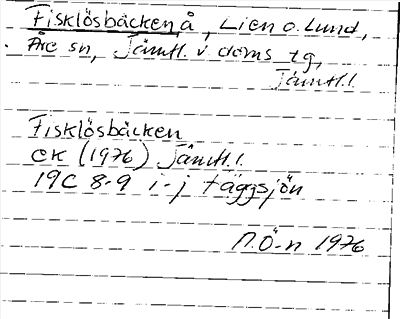 Fisklösbäcken, å, Lien o. Lund,
Åre sn, Jämtl. v doms tg,
Jämtl. l.
Fisklösbäcken
EK (1976) Jämtl. l.
19C 8-9 i-j Häggsjön
M.Ö-n 1976